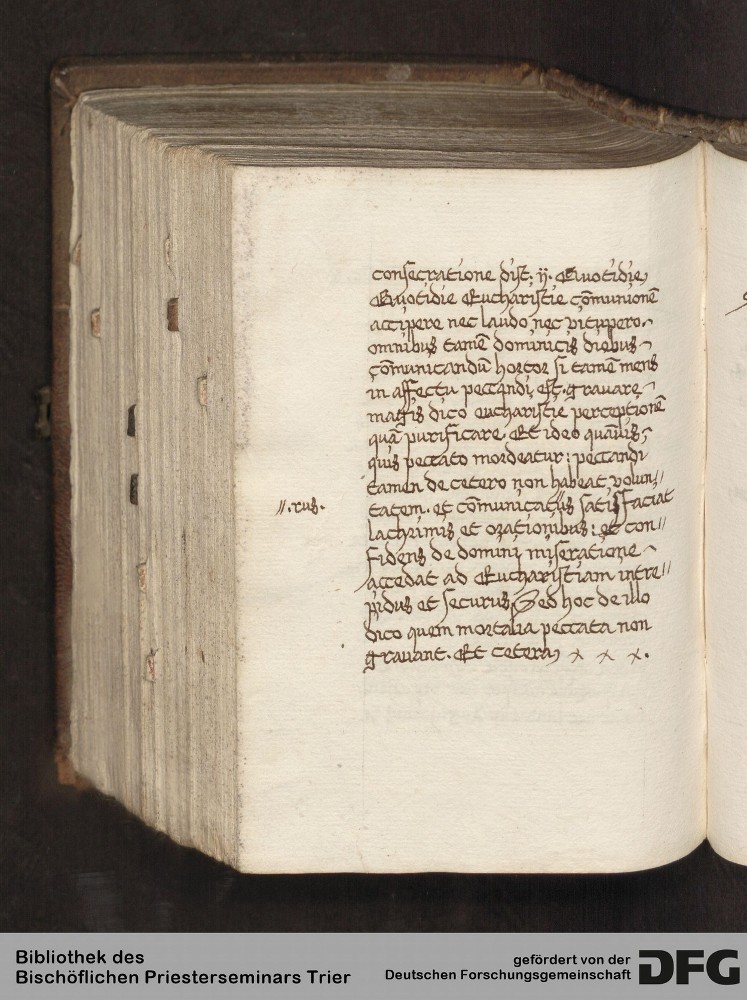 consecratione dist. ij. Quotidie
Quotidie Eucharistie cōmunionē
accipere nec laudo nec vitupero.
omnibus tamē dominicis diebus
cōmunicandū hortor si tamē mens
in affectu peccandi est. gravare
magis dico eucharistie perceptionē
quā purificare. Et ideo quāuis
quis peccato mordeatur: peccandi
tamen de cetero non habeat volun//
//.rus. tatem. et cōmunicatus satisfaciat
lachrimis et orationibus: et con//
fidens de domini miseratione
accedat ad Eucharistiam intre//
pidus et securus, Sed hoc de illo
dico quem mortalia peccata non
gravant. Et cetera, x x x.
Bibliothek des
Bischöflichen Priesterseminars Trier
gefördert von der
Deutschen Forschungsgemeinschaft
DFG